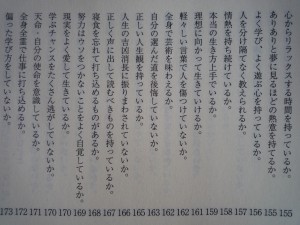 心からリラックスする時間を持っているか。 155
ありありと夢に見るほどの熱意を持てるか。 155
よく学び、よく遊ぶ心を持っているか。 156
人を分け隔てなく教えられるか。 157
情熱を持ち続けているか。 158
本当の生き方上手でいるか。 159
理想に向かって生きていけるか。 161
軽々しい言葉で人を傷つけていないか。 161
全身で芸術を味わえるか。 162
自分の選んだ道を後悔していないか。 163
正しい人生観を持っているか。 165
人生の吉凶消長に振りまわされていないか。 166
正しく声に出して読むべきものを持っているか。 167
寝食を忘れて打ち込めるものがあるか。 168
努力はウソをつかないことをよく自覚しているか。 169
現実をよく愛して生きているか。 170
学ぶチャンスをたくさん逃がしていないか。 170
天命・自分の使命を意識しているか。 171
全身全霊で仕事に打ち込めるか。 172
偏った学び方をしていないか。 173